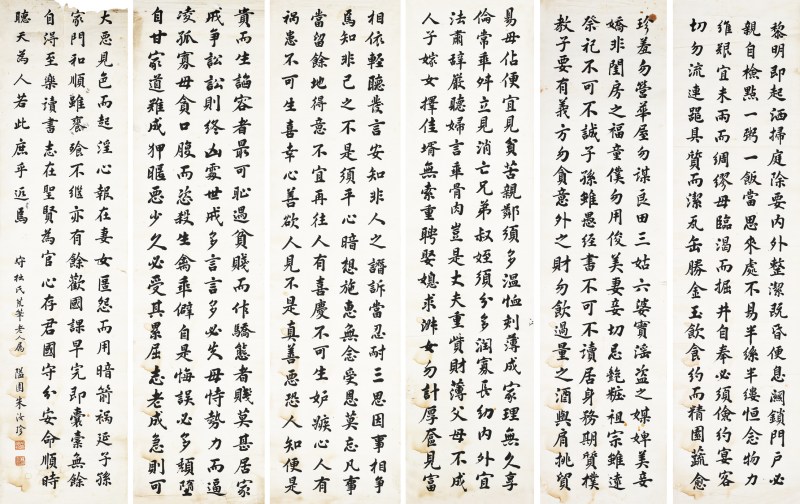 黎明即起洒掃庭除要內外整潔既昏便息闗鎖門戶必
親自檢點一粥一飯當思來處不易半絲半縷恒念物力
維艱宜未雨而綢繆毋臨渴而掘井自奉必須儉約宴客
切勿流連噐具質而潔瓦缶勝金玉飲食約而精園蔬愈
珍羞勿營華屋勿謀良田三姑六婆實淫盜之媒婢美妾
嬌非閨房之福童僕勿用俊美妻妾切忌艷粧祖宗雖遠
祭祀不可不誠子孫雖愚經書不可不讀居身務期質樸
教子要有義方勿貪意外之財勿飲過量之酒與肩挑貿
易毋佔便宜見貧苦親鄰須多溫恤刻薄成家理無久享
倫常乖舛立見消亡兄弟叔姪須分多潤寡長幼內外宜
法肅辭嚴聽婦言乖骨肉豈是丈夫重貲財薄父母不成
人子嫁女擇佳壻無索重聘娶媳求淑女勿計厚奩見富
相依輕聽發言安知非人之譖訴當忍耐三思因事相爭
焉知非己之不是須平心暗想施惠無念受恩莫忘凡事
當留餘地得意不宜再往人有喜慶不可生妒嫉心人有
禍患不可生喜幸心善欲人見不是真善惡恐人知便是
貴而生諂容者最可恥遇貧賤而作驕態者賤莫甚居家
戒爭訟訟則終凶處世戒多言言多必失毋恃勢力而逼
凌孤寡毋貪口腹而恣殺生禽乖僻自是悔誤必多頹墮
自甘家道難成狎暱惡少久必受其累屈志老成急則可
大惡見色而起淫心報在妻女匿怨而用暗箭禍延子孫
家門和順雖饔飧不繼亦有餘歡國課早完即囊橐無餘
自得至樂讀書志在聖賢為官心存君國守分安命順時
聽天為人若此庶乎近焉 守拙氏 老人屬 隘園朱汝珍